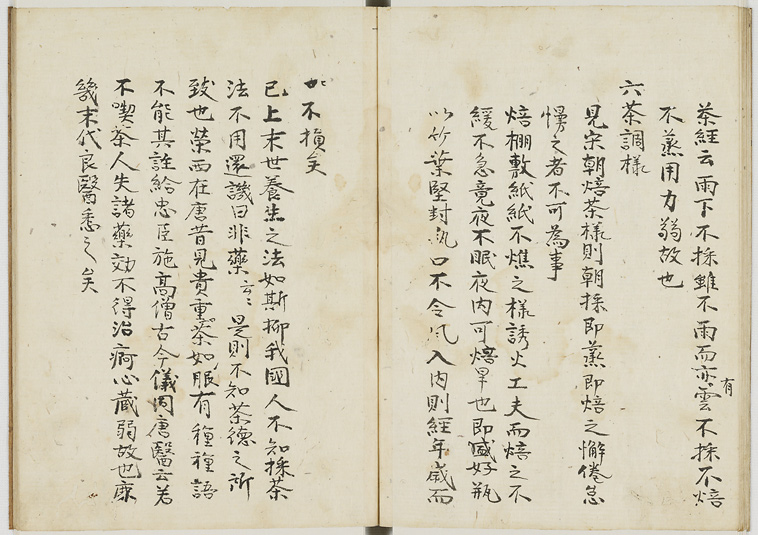 茶経云雨下不採雖不雨而亦有雲不採不焙
不蒸用力弱故也
六茶調様
見宋朝焙茶様則朝採即蒸即焙之懈倦怠
慢之者不可為事
焙棚敷紙紙不燋之様誘火工夫而焙之不
緩不急竟夜不眠夜内可焙畢也即盛好瓶
以竹葉堅封瓶口不令風入内則経年歳而
不損矣
已上末世養生之法如斯抑我國人不知採茶
法不用還譏曰非薬云々是則不知茶徳之所
致也榮西在唐昔見貴重茶如服有種種語
不能具註給忠臣施高僧古今儀同唐醫云若
不喫茶人失諸薬効不得治痾心蔵弱故也庶
幾末代良醫悉之矣